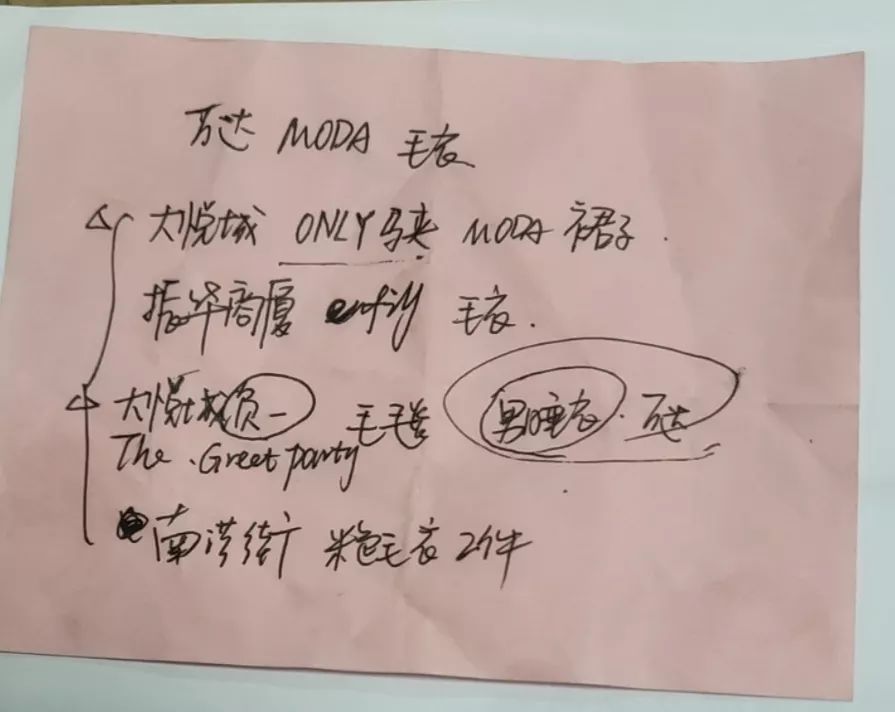 万达 MODA 毛衣
大悦城 ONLY马夹 MODA 裙子.
振华商厦 enfily 毛衣.
大悦城负一 毛毛 男睡衣. 万达
The Greet party
南洪街 米色毛衣2件